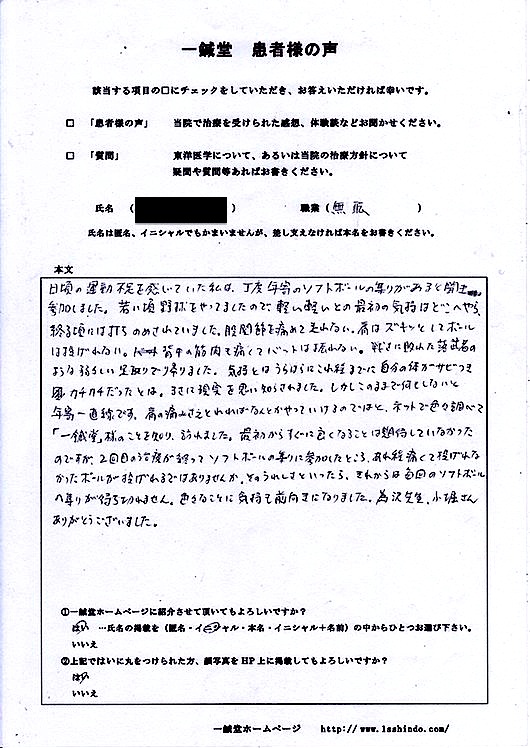 一鍼堂　患者様の声
該当する項目の□にチェックをしていただき、お答えいただければ幸いです。
□　「患者様の声」　当院で治療を受けられた感想、体験談などお聞かせください。
□　「質問」　東洋医学について、あるいは当院の治療方針について
疑問や質問等あればお書きください。
氏名　（　　　）　職業（無職　　）
氏名は匿名、イニシャルでもかまいませんが、差し支えなければ本名をお書きください。
本文
日頃の運動不足を感じていた私は、丁度年寄のソフトボールの集りがあると聞き
参加しました。若い頃野球をやってましたので軽い軽いとの最初の気持はどこへやら、
終る頃には打ちのめされていました。股関節を痛めて走れない。肩はズキッとしてボール
は投げれない。背中の筋肉も痛くてバットは振れない。戦さに敗れた落武者の
ような弱々しい足取りで帰りました。気持とはうらはらにこれ程までに自分の体がサビつき
固カチカチだったとは。まさに現実を思い知らされました。しかしこのままで何もしないと
年寄一直線です。肩の痛みさえとれればなんとかやっていけるのではと、ネットで色々調べて
「一鍼堂」様のことを知り、訪れました。最初からすぐに良くなることは期待していなかった
のですが、2回目の治療が終ってソフトボールの集りに参加したところ、あれ程痛くて投げれな
かったボールが投げれるではありませんか、そのうれしさといったら、それからは毎回のソフトボール
の集りが待ち切れません。色々なことに気持も前向きになりました。為沢先生、小堀さん
ありがとうございました。
①一鍼堂ホームページに紹介させて頂いてもよろしいですか？
はい　…氏名の掲載を（匿名・イニシャル・本名・イニシャル＋名前）の中からひとつお選び下さい。
いいえ
②上記ではいに丸をつけられた方、顔写真をHP上に掲載してもよろしいですか？
はい
いいえ
一鍼堂ホームページ　http://www.1sshindo.com/